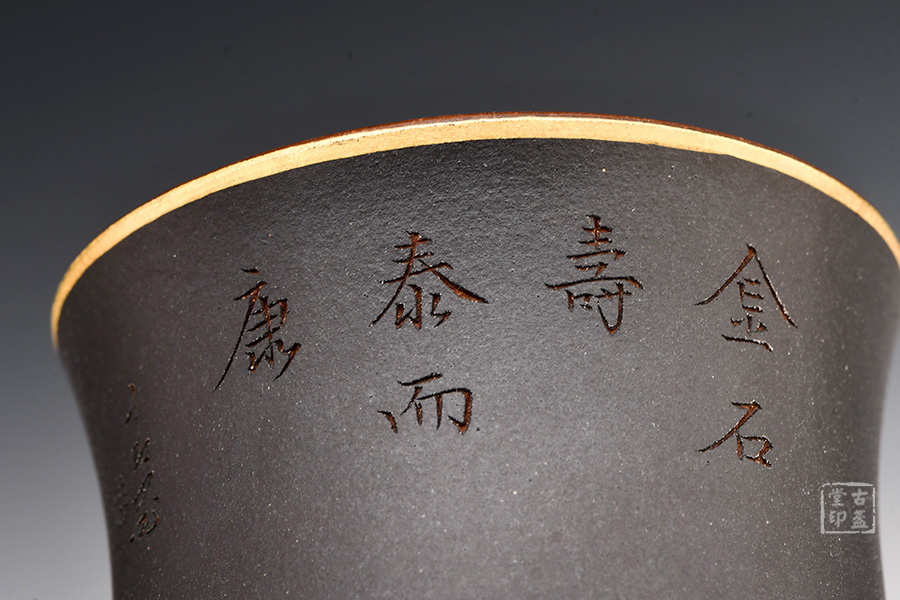 金石
壽
泰而
康
古盖
堂印